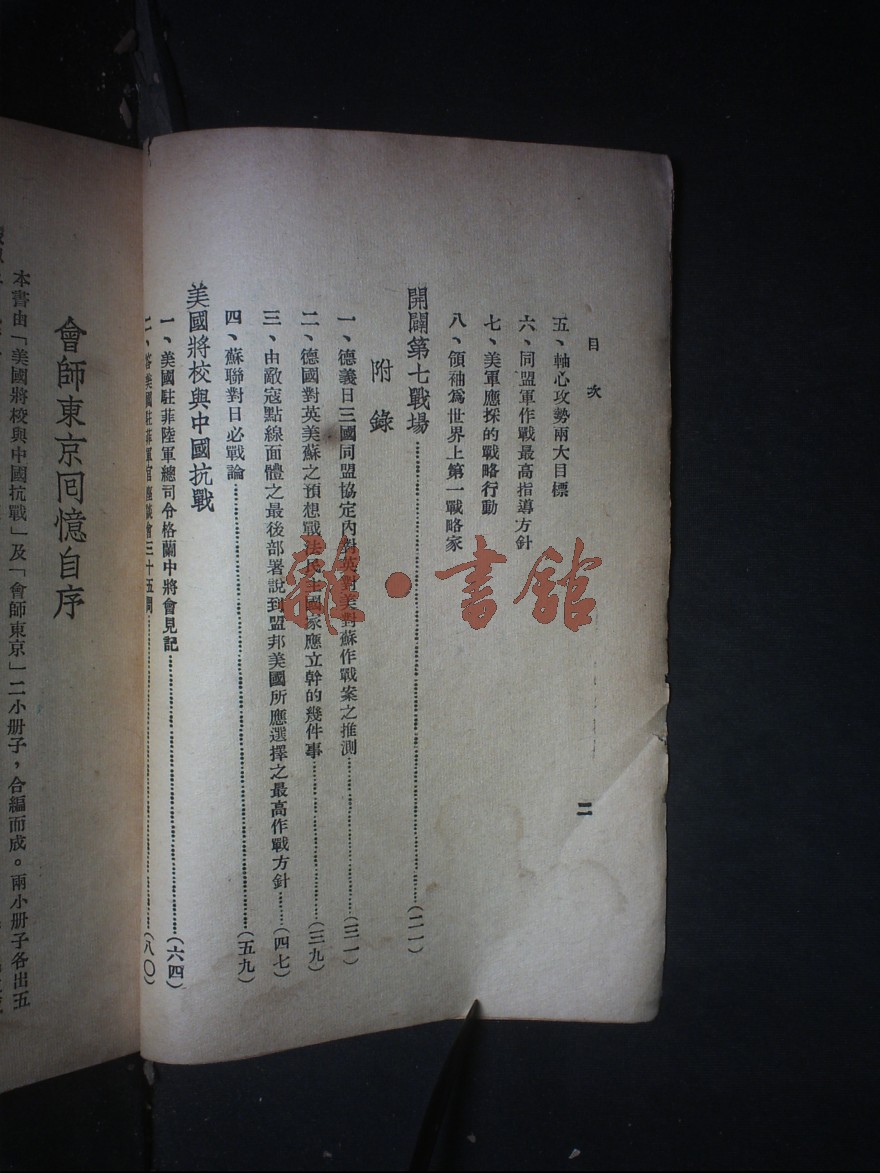 目次
二
五、軸心攻勢兩大目標
六、同盟軍作戰最高指導方針
七、美軍應採的戰略行動
八、領袖爲世界上第一戰略家
開闢第七戰場……(二一)
附錄
一、德義日三國同盟協定內對英對美對蘇作戰案之推測……(三一)
二、德國對英美蘇之預想戰法民主國家應立幹的幾件事……(三九)
三、由敵寇點線面體之最後部署說到盟邦美國所應選擇之最高作戰方針……(四七)
四、蘇聯對日必戰論……(五九)
美國將校與中國抗戰
一、美國駐菲陸軍總司令格蘭中將會見記……(六四)
二、答美國駐菲軍官座談會三十五問……(八〇)
會師東京回憶自序
本書由「美國將校與中國抗戰」及「會師東京」二小册子，合編而成。兩小册子各出五
雜·書館